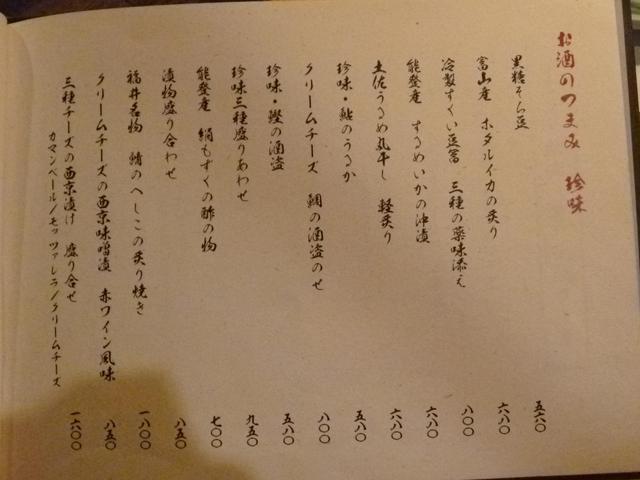 お酒のつまみ 珍味
黒糖そら豆 五六〇
富山産 ホタルイカの炙り 六八〇
冷製すくい豆富 三種の薬味添え 八〇〇
能登産 するめいかの沖漬 六八〇
土佐うるめ丸干し 軽炙り 六八〇
珍味・鮎のうるか 五八〇
クリームチーズ 鯛の酒盗のせ 八〇〇
珍味・鰹の酒盗 五八〇
珍味三種盛りあわせ 九五〇
能登産 絹もずくの酢の物 七〇〇
漬物盛り合わせ 八五〇
福井名物 鯖のへしこの炙り焼き 一八〇〇
クリームチーズの西京味噌漬 赤ワイン風味 八五〇
三種チーズの西京漬け 盛り合せ 一六〇〇
カマンベール/モッツァレラ/クリームチーズ